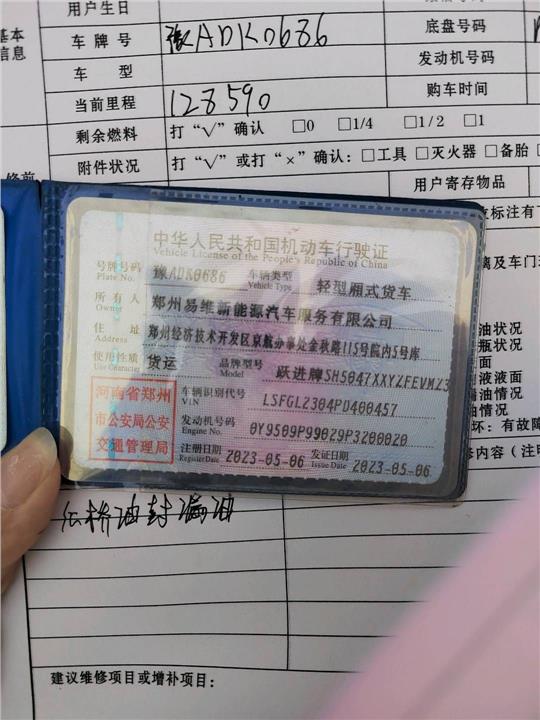 用户生日
基本
信息
车牌号 豫ADK0686
底盘号码
车 型
发动机号码
当前里程 128590
购车时间
剩余燃料 打“√”确认 □0 □1/4 □1/2 □1
附件状况 打“√”或打“×”确认：□工具 □灭火器 □备胎
用户寄存物品
中华人民共和国机动车行驶证
Vehicle License of the People's Republic of China
号牌号码 豫ADK0686 车辆类型 轻型厢式货车
Plate No. Vehicle Type
所有人 郑州易维新能源汽车服务有限公司
Owner
住址 郑州经济技术开发区京航办事处金秋路115号院内5号库
Address
使用性质 货运 品牌型号 跃进牌SH5047XXYZFEVMZ3
Use Character Model
河南省郑州
市公安局公安
交通管理局
车辆识别代号 LSFGL2304PD400457
VIN
发动机号码 0Y9509P99029P3200020
Engine No.
注册日期 2023-05-06 发证日期 2023-05-06
Register Date Issue Date
标注有
离及车门
油状况
瓶状况
液面
液液面
油情况
情况
坏：有故障
内容（注明
桥油封漏油
建议维修项目或增补项目：